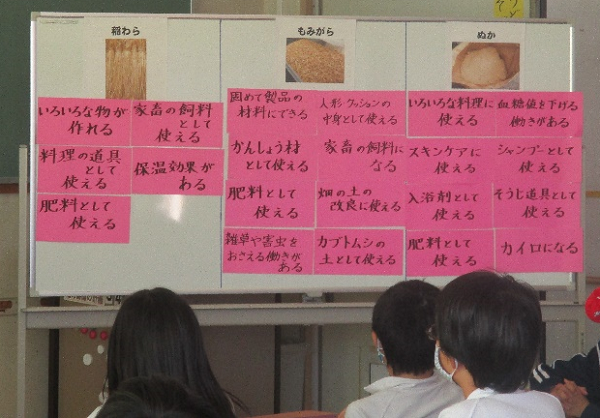 稲わら
いろいろな物が
作れる
家畜の飼料
として
使える
料理の道具
として
使える
保温効果が
ある
肥料として
使える
もみがら
固めて製品の
材料にできる
人形・クッションの
中身として使える
かんしょう材
として使える
家畜の飼料に
なる
肥料として
使える
畑の土の
改良に使える
雑草や害虫を
おさえる働きが
ある
カブトムシの
土として使える
ぬか
いろいろな料理に
使える
血糖値を下げる
働きがある
スキンケアに
使える
シャンプーとして
使える
入浴剤として
使える
そうじ道具として
使える
肥料として
使える
カイロになる